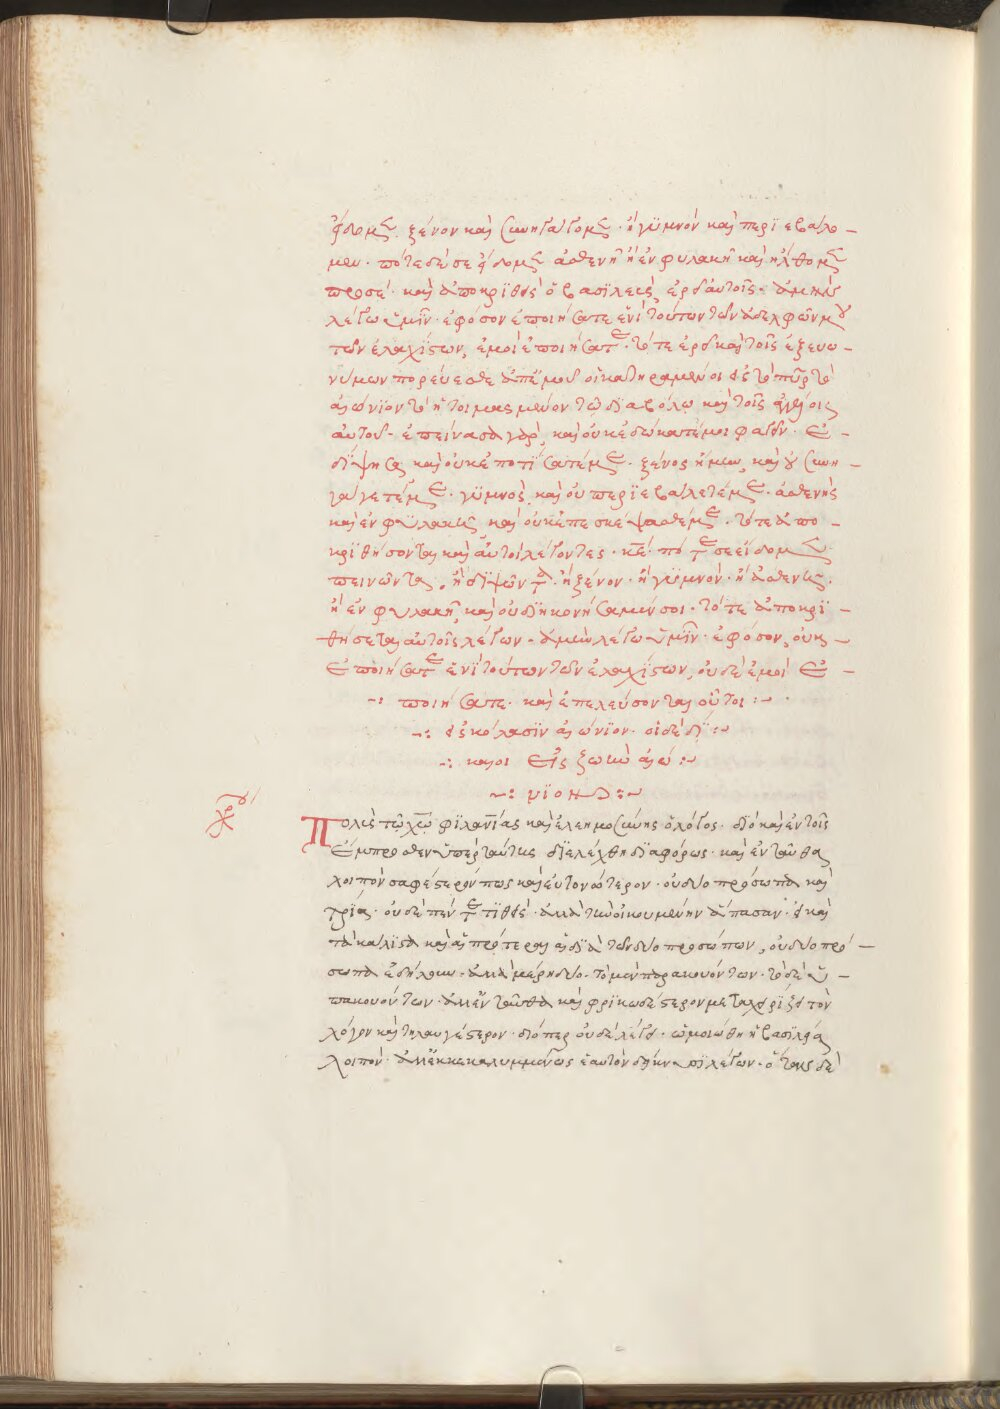 εἴδομεν ξένον καὶ συνηγάγομεν· ἢ γϋμνὸν καὶ περϊεβάλο –
μεν· πότε δέ σε εἴδομεν ἀσθενῆ ἢ ἐν φυλακῆ καὶ ἤλθομεν
πρὸς σέ· καὶ ἀποκρϊθεὶς ὁ βασϊλεὺς, ἐρεῖ αὐτοῖς· ἀμὴν
λέγω ὑμῖν· ἐφόσον ἐποιήσατε ἑνὶ τούτων τῶν ἀδελφῶν μου
τῶν ἐλαχϊστων, ἐμοὶ ἐποιήσατε· τότε ἐρεῖ καὶ τοῖς ἐξ εὐω –
νύμων πορεύεσθε ἀπ' ἐμοῦ οἱ κατηραμένοι εἰς τὸ πῦρ τὸ
αἰώνϊον τὸ ἡτοιμασμένον τῷ δϊαβόλω καὶ τοῖς ἀγγέλοις
αὐτοῦ· ἐπείνασα γὰρ, καὶ οὐκ ἐδώκατέ μοι φαγεῖν· ἐ –
δϊψησα καὶ οὐκ ἐποτϊσατέ με· ξένος ἤμην, καὶ οὐ συνη –
γάγετέ με· γϋμνὸς καὶ οὐ περϊεβάλετέ με· ἀσθενὴς
καὶ ἐν φϋλακῆ, καὶ οὐκ ἐπεσκέψασθέ με· τότε ἀπο –
κρϊθήσονται καὶ αὐτοὶ λέγοντες· κε· πότε σε εἴδομεν
πεινῶντα, ἢ δϊψῶντα· ἢ ξένον· ἢ γϋμνὸν· ἢ ἀσθενῆ·
ἢ ἐν φυλακῆ, καὶ οὐ δϊηκονήσαμέν σοι· τότε ἀποκρϊ –
θήσεται αὐτοῖς λέγων· ἀμὴν λέγω ὑμῖν· ἐφόσον, οὐκ –
ἐποιήσατε ἑνὶ τούτων τῶν ἐλαχϊστων, οὐδὲ ἐμοὶ ἐ –
ποιήσατε· καὶ ἀπελεύσονται οὗτοι
εἰς κόλασϊν αἰώνϊον· οἱ δὲ δϊ
καιοι εἰς ζωὴν αἰώ
νϊον
Πολὺς τῷ χῶ φϊλανίας καὶ ἐλεημοσύνης ὁ λόγος· διὸ καὶ ἐν τοῖς
ἔμπροσθεν ὑπὲρ ταύτης δϊελέχθη δϊαφόρως· καὶ ἐνταῦθα
λοιπὸν σαφέστερόν πως καὶ εὐτονώτερον· οὐ δύο πρόσωπα καὶ
τρία· οὐδὲ πέντε τϊθεὶς· ἀλλὰ τὴν οἰκουμένην ἅπασαν· εἰ καὶ
τὰ μάλϊστα καὶ αἱ πρότεραι αἱ δϊὰ τῶν δύο προσώπων, οὐ δύο πρό –
σωπα ἐδήλουν· ἀλλὰ μέρη δύο· τὸ μὲν παρακουόντων· τὸ δὲ ὑ –
πακουόντων· ἀλλ' ἐνταῦθα καὶ φρϊκωδέστερον μεταχειρϊζει τὸν
λόγον καὶ τηλαυγέστερον· διόπερ οὐδὲ λέγει· ὡμοιώθη ἡ βασϊλεία
λοιπὸν· ἀλλ' ἐκκεκαλυμμένως ἑαυτὸν δείκνυσϊ λέγων· ὅταν δὲ